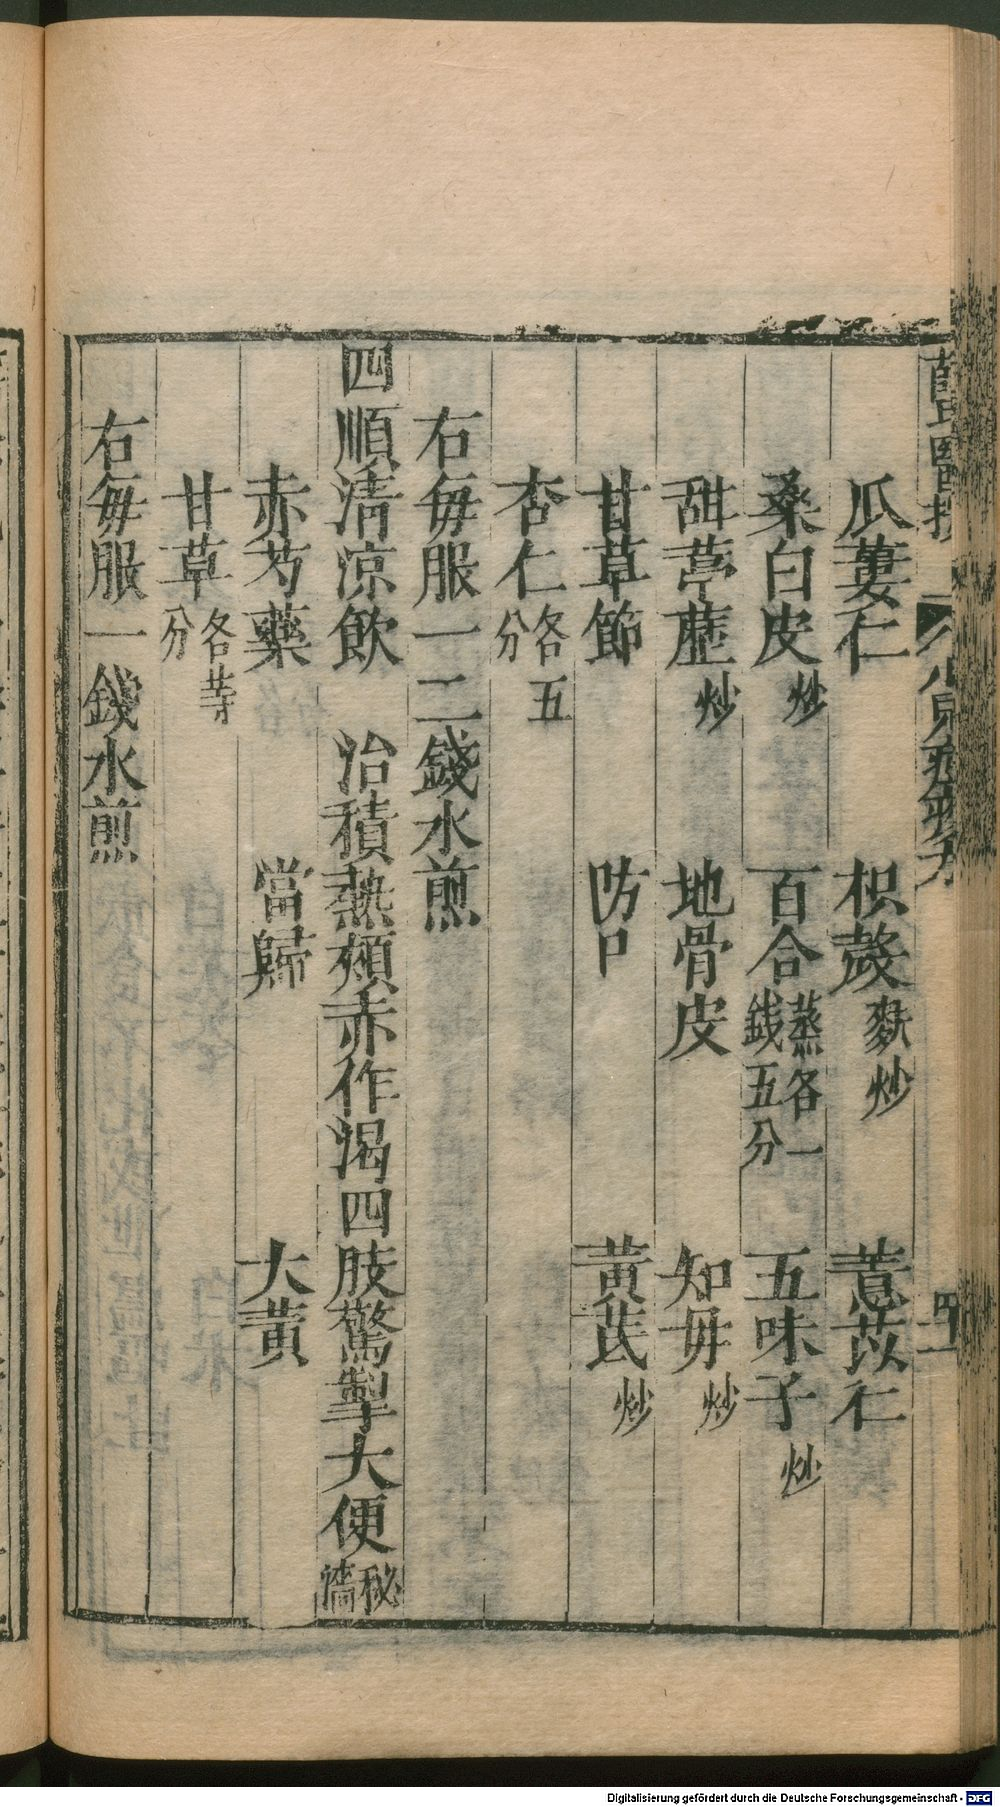 薛氏醫按 小兒痘疹方 四一
瓜蔞仁 枳殼麩炒 薏苡仁
桑白皮炒 百合蒸各一錢五分 五味子炒
甜葶藶炒 地骨皮 知母炒
甘草節 防 黃芪炒
杏仁各五分
右每服一二錢水煎
四順清涼飲 治積熱頰赤作渴四肢驚掣大便秘濇
赤芍藥 當歸 大黃
甘草各等分
右每服一錢水煎
Digitalisierung gefördert durch die Deutsche Forschungsgemeinschaft - DFG